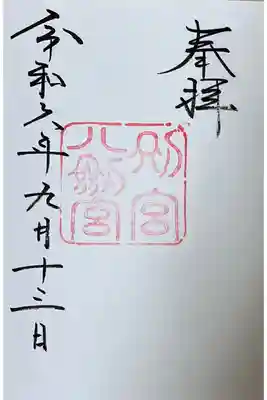 奉拝
別宮
八剱宮
令和六年九月十三日